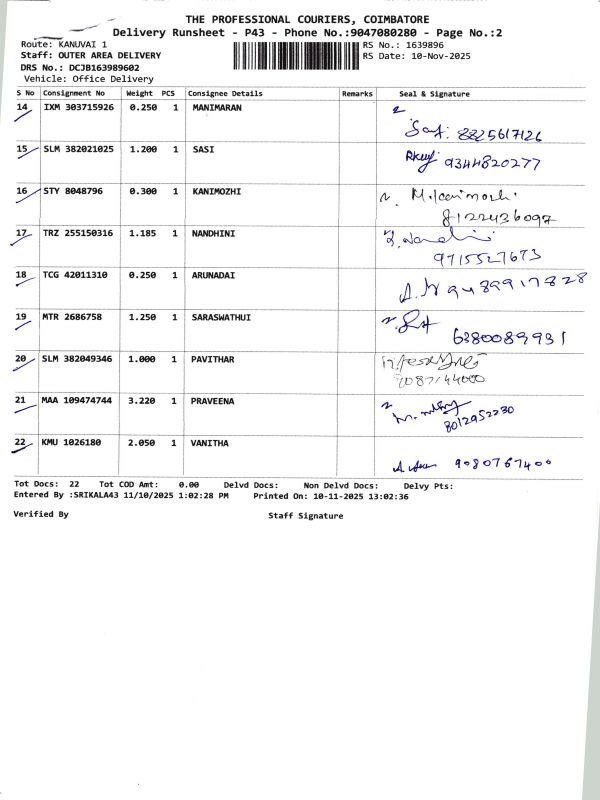 THE PROFESSIONAL COURIERS, COIMBATORE
Delivery Runsheet - P43 - Phone No.:9047080280 - Page No.:2
Route: KANUVAI 1 RS No.: 1639896
Staff: OUTER AREA DELIVERY RS Date: 10-Nov-2025
DRS No.: DCJB163989602
Vehicle: Office Delivery
S No Consignment No Weight PCS Consignee Details Remarks Seal & Signature
14 IXM 303715926 0.250 1 MANIMARAN
8825617126
15 SLM 382021025 1.200 1 SASI
9344820277
16 STY 8048796 0.300 1 KANIMOZHI
8122436097
17 TRZ 255150316 1.185 1 NANDHINI
9715527673
18 TCG 42011310 0.250 1 ARUNADAI
9489917828
19 MTR 2686758 1.250 1 SARASWATHUI
6380089931
20 SLM 382049346 1.000 1 PAVITHAR
9087144000
21 MAA 109474744 3.220 1 PRAVEENA
8012952230
22 KMU 1026180 2.050 1 VANITHA
9080767400
Tot Docs: 22 Tot COD Amt: 0.00 Delvd Docs: Non Delvd Docs: Delvy Pts:
Entered By :SRIKALA43 11/10/2025 1:02:28 PM Printed On: 10-11-2025 13:02:36
Verified By Staff Signature